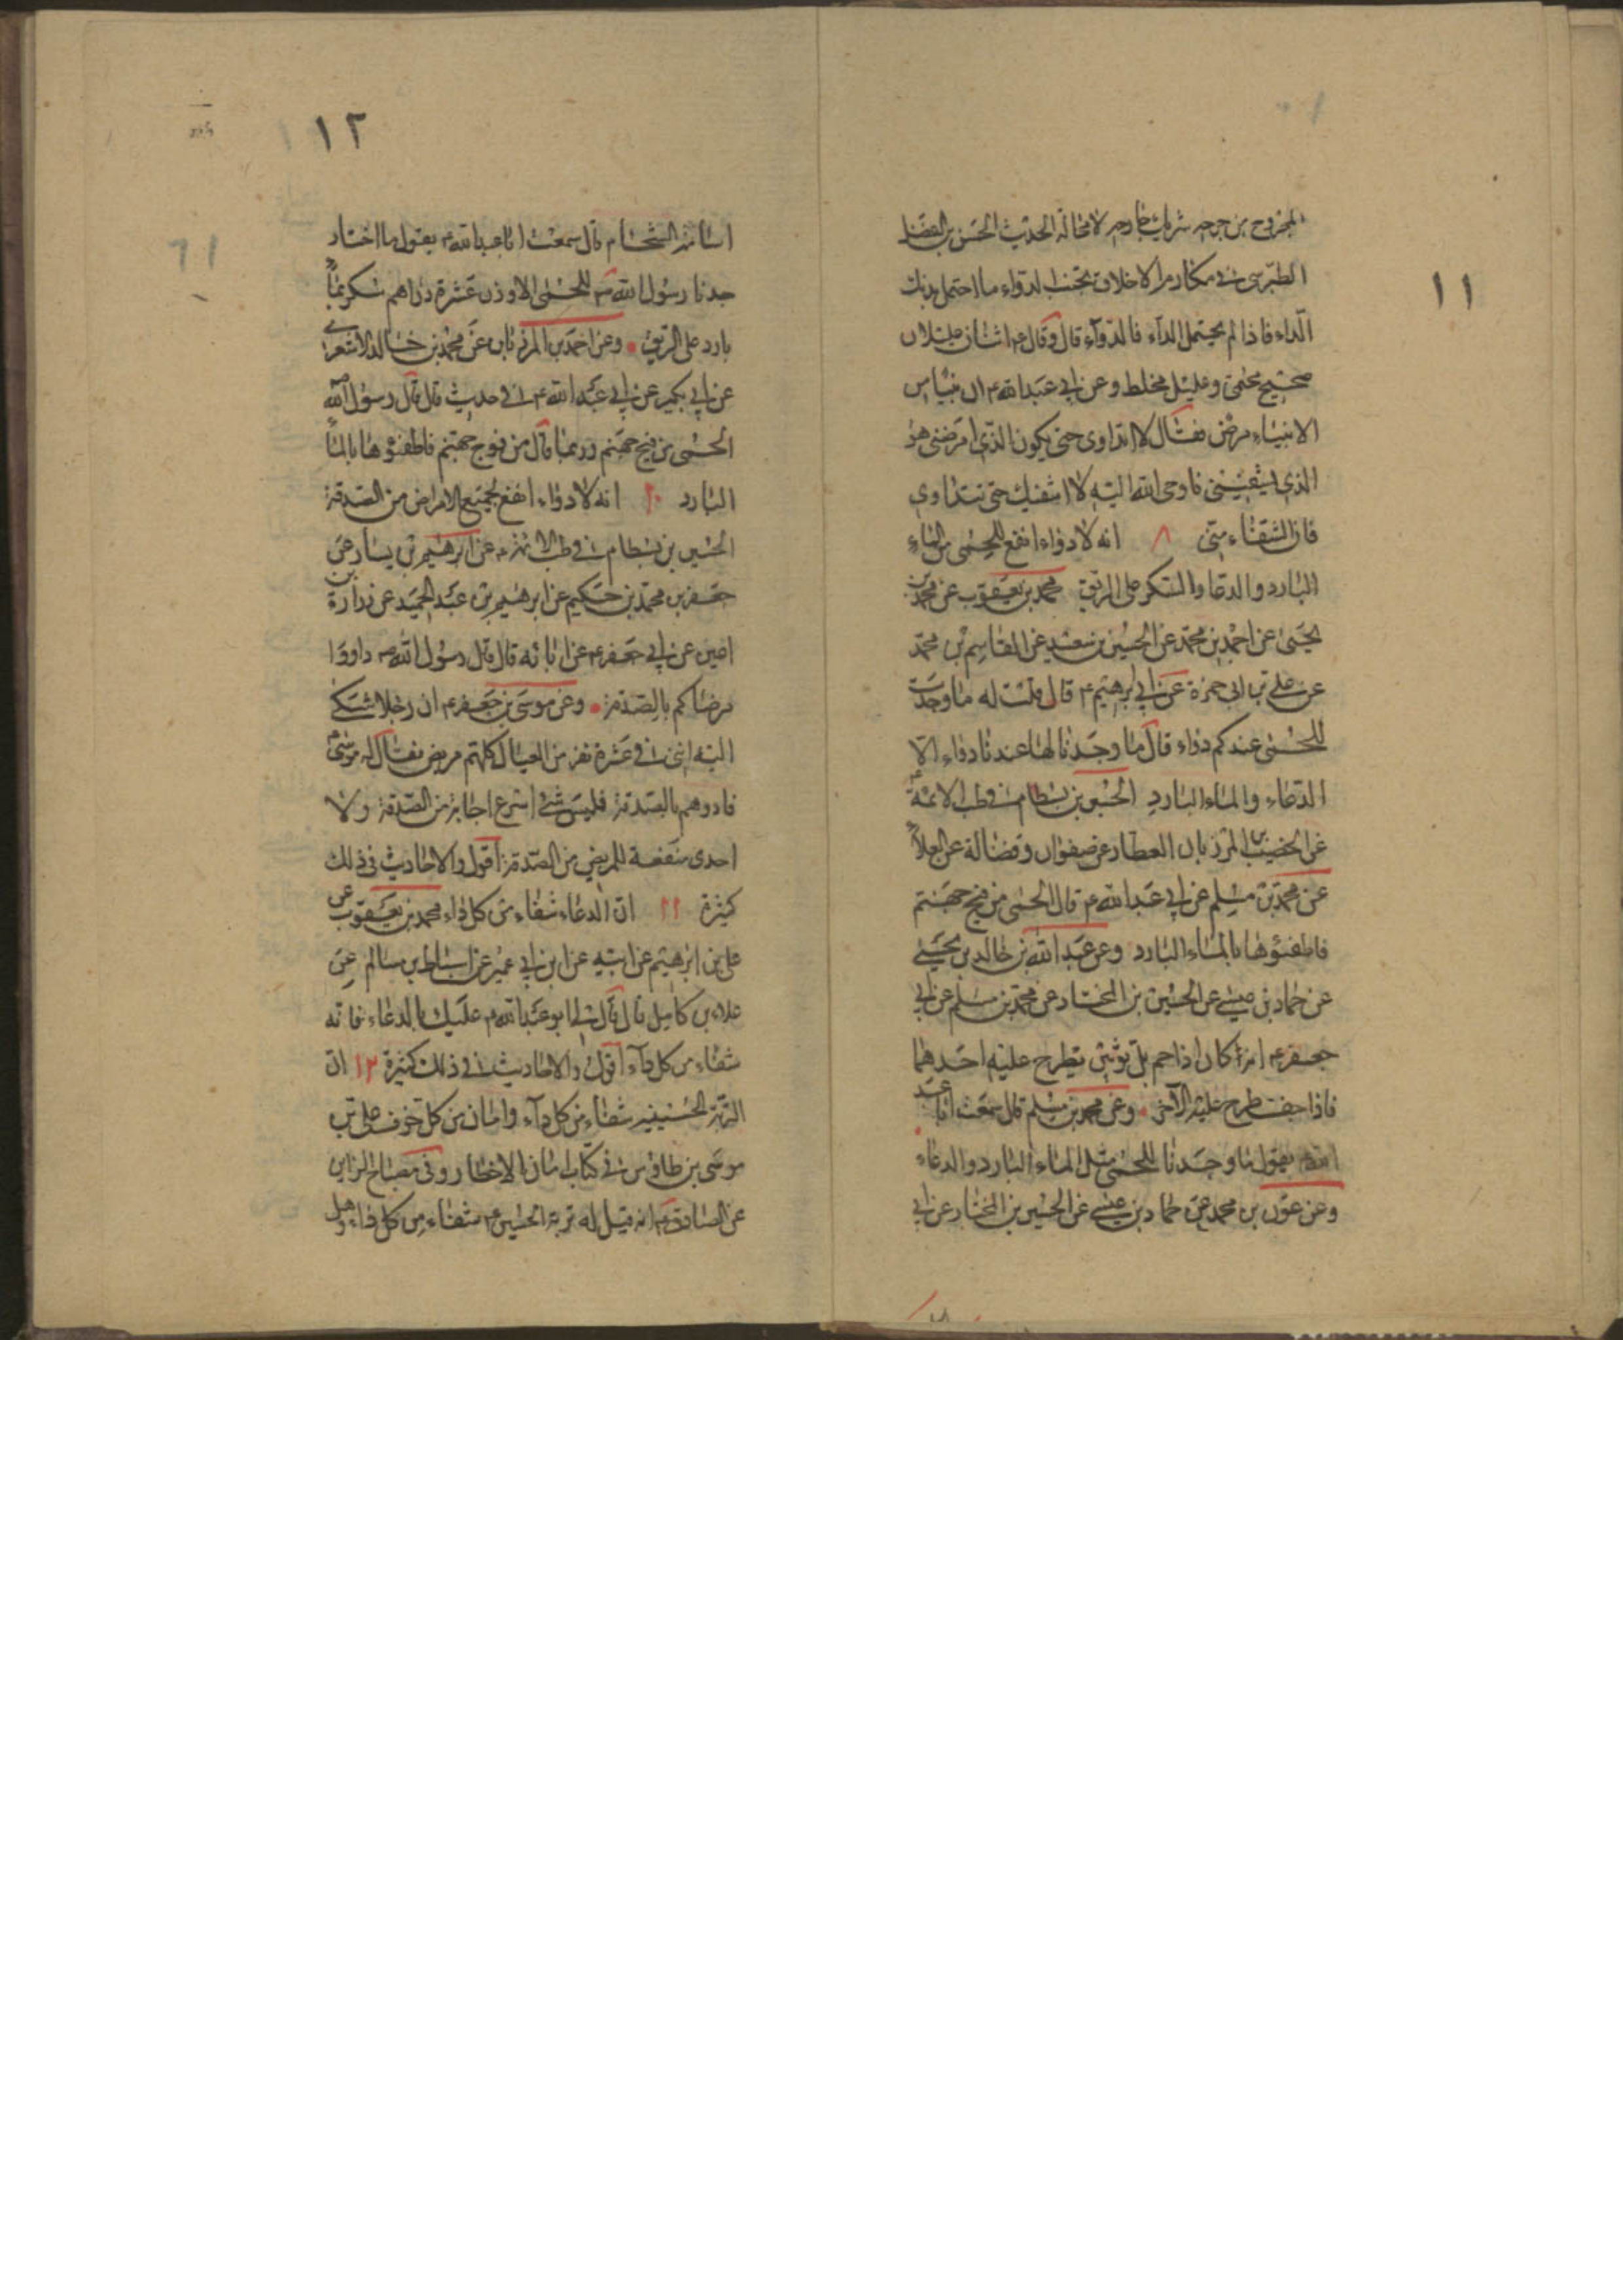 ١١
المجروح من جرحه شريك جارحه لا محالة الحديث الحسن بن الفضل
الطبرسى فى مكارم الاخلاق تجنب الدواء ما احتمل بدنك
الداء فاذا لم يحتمل الداء فالدواء قال وقال ع اثنان عليلان
صحيح محتمى وعليل مخلط وعن ابى عبد الله ع ان نبيا من
الانبياء مرض فقال لا اتداوى حتى يكون الذى امرضنى هو
الذى يشفينى فاوحى الله اليه لا اشفيك حتى تتداوى
فان الشفاء منى ٨ انه لا دواء انفع للحمى من الماء
البارد والدعا والسكر على الريق محمد بن يعقوب عن محمد بن
يحيى عن احمد بن محمد عن الحسين بن سعيد عن القاسم بن محمد
عن على بن ابى حمزة عن ابى ابرهيم ع قال قلت له ما وجدت
للحمى عندكم دواء قال ما وجدنا لها عندنا دواء الا
الدعاء والماء البارد الحسين بن بسطام فى طب الائمة ع
عن الخضيب بن المرزبان العطار عن صفوان وفضالة عن العلاء
عن محمد بن مسلم عن ابى عبد الله ع قال الحمى من فيح جهنم
فاطفئوها بالماء البارد وعن عبد الله بن خالد بن يحيى
عن حماد بن عيسى عن الحسين بن المختار عن محمد بن مسلم عن ابى
جعفر ع انه كان اذا حم بل ثوبين يطرح عليه احدهما
فاذا جف طرح عليه الآخر وعن محمد بن مسلم قال سمعت ابا عبد
الله ع يقول ما وجدنا للحمى مثل الماء البارد والدعاء
وعن عون بن محمد عن حماد بن عيسى عن الحسين بن المختار عن ابى
١٢
اسامة الشحام قال سمعت ابا عبد الله ع يقول ما اختار
جدنا رسول الله ص للحمى الا وزن عشرة دراهم سكر بماء
بارد على الريق وعن احمد بن المرزبان عن محمد بن خالد الاشعرى
عن ابى بكير عن ابى عبد الله ع فى حديث قال قال رسول الله ص
الحمى من فيح جهنم وربما قال من فوح جهنم فاطفئوها بالماء
البارد ١٠ انه لا دواء انفع لجميع الامراض من الصدقة
الحسين بن بسطام فى طب الائمة ع عن ابرهيم بن يسار عن
جعفر بن محمد بن حكيم عن ابرهيم بن عبد الحميد عن زرارة بن
اعين عن ابى جعفر ع عن آبائه قال قال رسول الله ص داووا
مرضاكم بالصدقة وعن موسى بن جعفر ع ان رجلا شتكى
اليه اننى فى عشرة نفر من العيال كلهم مريض فقال له موسى ع
فادوهم بالصدقة فليس شئ اسرع اجابة من الصدقة ولا
اجدى منفعة للمريض من الصدقة اقول والاحاديث فى ذلك
كثيرة ١١ ان الدعاء شفاء من كل داء محمد بن يعقوب عن
على بن ابرهيم عن ابيه عن ابن ابى عمير عن اسباط بن سالم عن
علاء بن كامل قال قال لى ابو عبد الله ع عليك بالدعاء فانه
شفاء من كل داء اقول والاحاديث فى ذلك كثيرة ١٢ ان
التربة الحسينية شفاء من كل داء وامان من كل خوف على بن
موسى بن طاوس فى كتاب امان الاخطار وفى مصباح الزاير
عن الصادق ع انه قيل له تربة الحسين ع شفاء من كل داء وهل